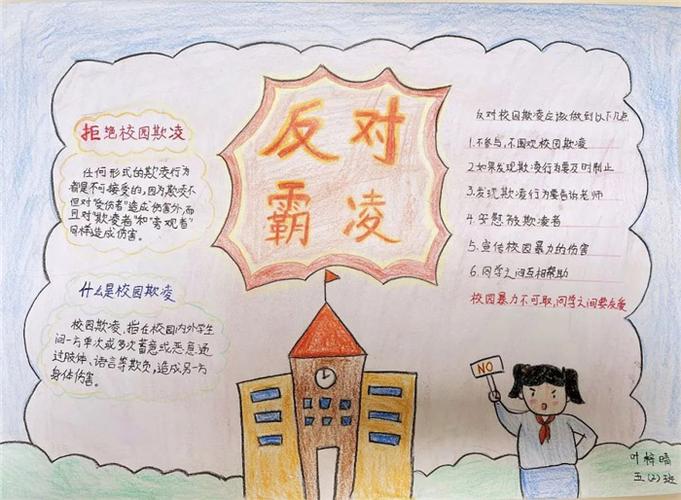 反对
霸凌
拒绝校园欺凌
任何形式的欺凌行为
都是不可接受的,因为欺凌不
但对"受伤者"造成伤害外,而
且对"欺凌者"和"旁观者"
同样造成伤害。
什么是校园欺凌
校园欺凌,指在校园内外学生
间一方单次或多次蓄意或恶意通
过肢体、语言等欺负,造成另一方
身体伤害。
反对校园欺凌应该做到以下几点
1.不参与,不围观校园欺凌
2.如果发现欺凌行为要及时制止
3.发现欺凌行为要告诉老师
4.安慰被欺凌者
5.宣传校园暴力的伤害
6.同学之间互相帮助
校园暴力不可取,同学之间要友爱
NO
叶梓晴
五(2)班